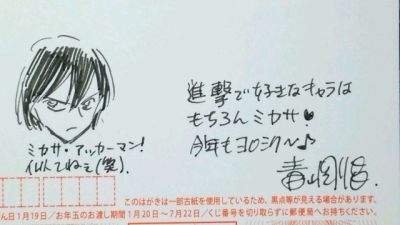 進撃で好きなキャラは
もちろんミカサ♥
今年もヨロシク〜♪
ミカサ・アッカーマン!
似てねぇ(笑).
このはがきは一部古紙を使用しているため、黒点等が見える場合があります。
ん日1月19日/お年玉のお渡し期間 1月20日〜7月22日/くじ番号を切り取らずに郵便局へお持ちください。